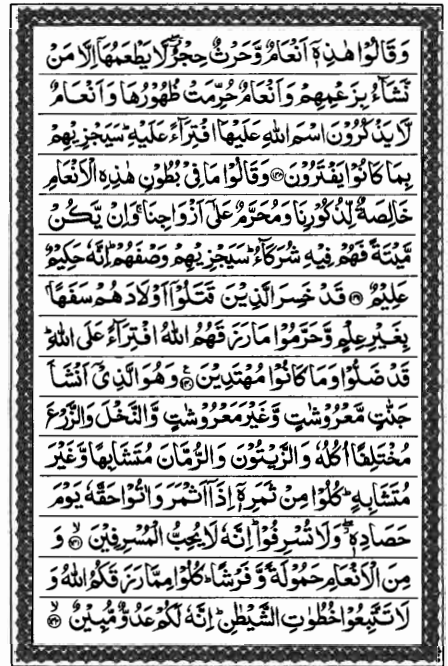 وَقَالُوْا هٰذِهٖۤ اَنْعَامٌ وَّحَرْثٌ حِجْرٌ ۖ لَّا یَطْعَمُهَاۤ اِلَّا مَنْ
نَّشَآءُ بِزَعْمِهِمْ وَاَنْعَامٌ حُرِّمَتْ ظُهُوْرُهَا وَاَنْعَامٌ
لَّا یَذْكُرُوْنَ اسْمَ اللّٰهِ عَلَیْهَا افْتِرَآءً عَلَیْهِ ؕ سَیَجْزِیْهِمْ
بِمَا كَانُوْا یَفْتَرُوْنَ ﴿۱۳۸﴾ وَقَالُوْا مَا فِیْ بُطُوْنِ هٰذِهِ الْاَنْعَامِ
خَالِصَةٌ لِّذُكُوْرِنَا وَمُحَرَّمٌ عَلٰۤی اَزْوَاجِنَا ۚ وَاِنْ یَّكُنْ
مَّیْتَةً فَهُمْ فِیْهِ شُرَكَآءُ ؕ سَیَجْزِیْهِمْ وَصْفَهُمْ ؕ اِنَّهٗ حَكِیْمٌ
عَلِیْمٌ ﴿۱۳۹﴾ قَدْ خَسِرَ الَّذِیْنَ قَتَلُوْۤا اَوْلَادَهُمْ سَفَهًۢا
بِغَیْرِ عِلْمٍ وَّحَرَّمُوْا مَا رَزَقَهُمُ اللّٰهُ افْتِرَآءً عَلَی اللّٰهِ ؕ
قَدْ ضَلُّوْا وَمَا كَانُوْا مُهْتَدِیْنَ ﴿۱۴۰﴾ وَهُوَ الَّذِیْۤ اَنْشَاَ
جَنّٰتٍ مَّعْرُوْشٰتٍ وَّغَیْرَ مَعْرُوْشٰتٍ وَّالنَّخْلَ وَالزَّرْعَ
مُخْتَلِفًا اُكُلُهٗ وَالزَّیْتُوْنَ وَالرُّمَّانَ مُتَشَابِهًا وَّغَیْرَ
مُتَشَابِهٍ ؕ كُلُوْا مِنْ ثَمَرِهٖۤ اِذَاۤ اَثْمَرَ وَاٰتُوْا حَقَّهٗ یَوْمَ
حَصَادِهٖ ۖ وَلَا تُسْرِفُوْا ؕ اِنَّهٗ لَا یُحِبُّ الْمُسْرِفِیْنَ ﴿۱۴۱﴾ وَ
مِنَ الْاَنْعَامِ حَمُوْلَةً وَّفَرْشًا ؕ كُلُوْا مِمَّا رَزَقَكُمُ اللّٰهُ وَ
لَا تَتَّبِعُوْا خُطُوٰتِ الشَّیْطٰنِ ؕ اِنَّهٗ لَكُمْ عَدُوٌّ مُّبِیْنٌ ﴿۱۴۲﴾